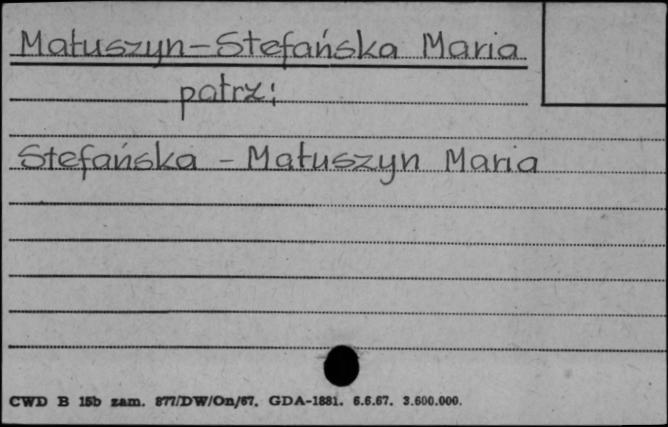 Matuszyn-Stefańska Maria
patrz:
Stefańska - Matuszyn Maria
CWD B 15b zam. 877/DW/On/67. GDA-1881. 6.6.67. 3.600.000.